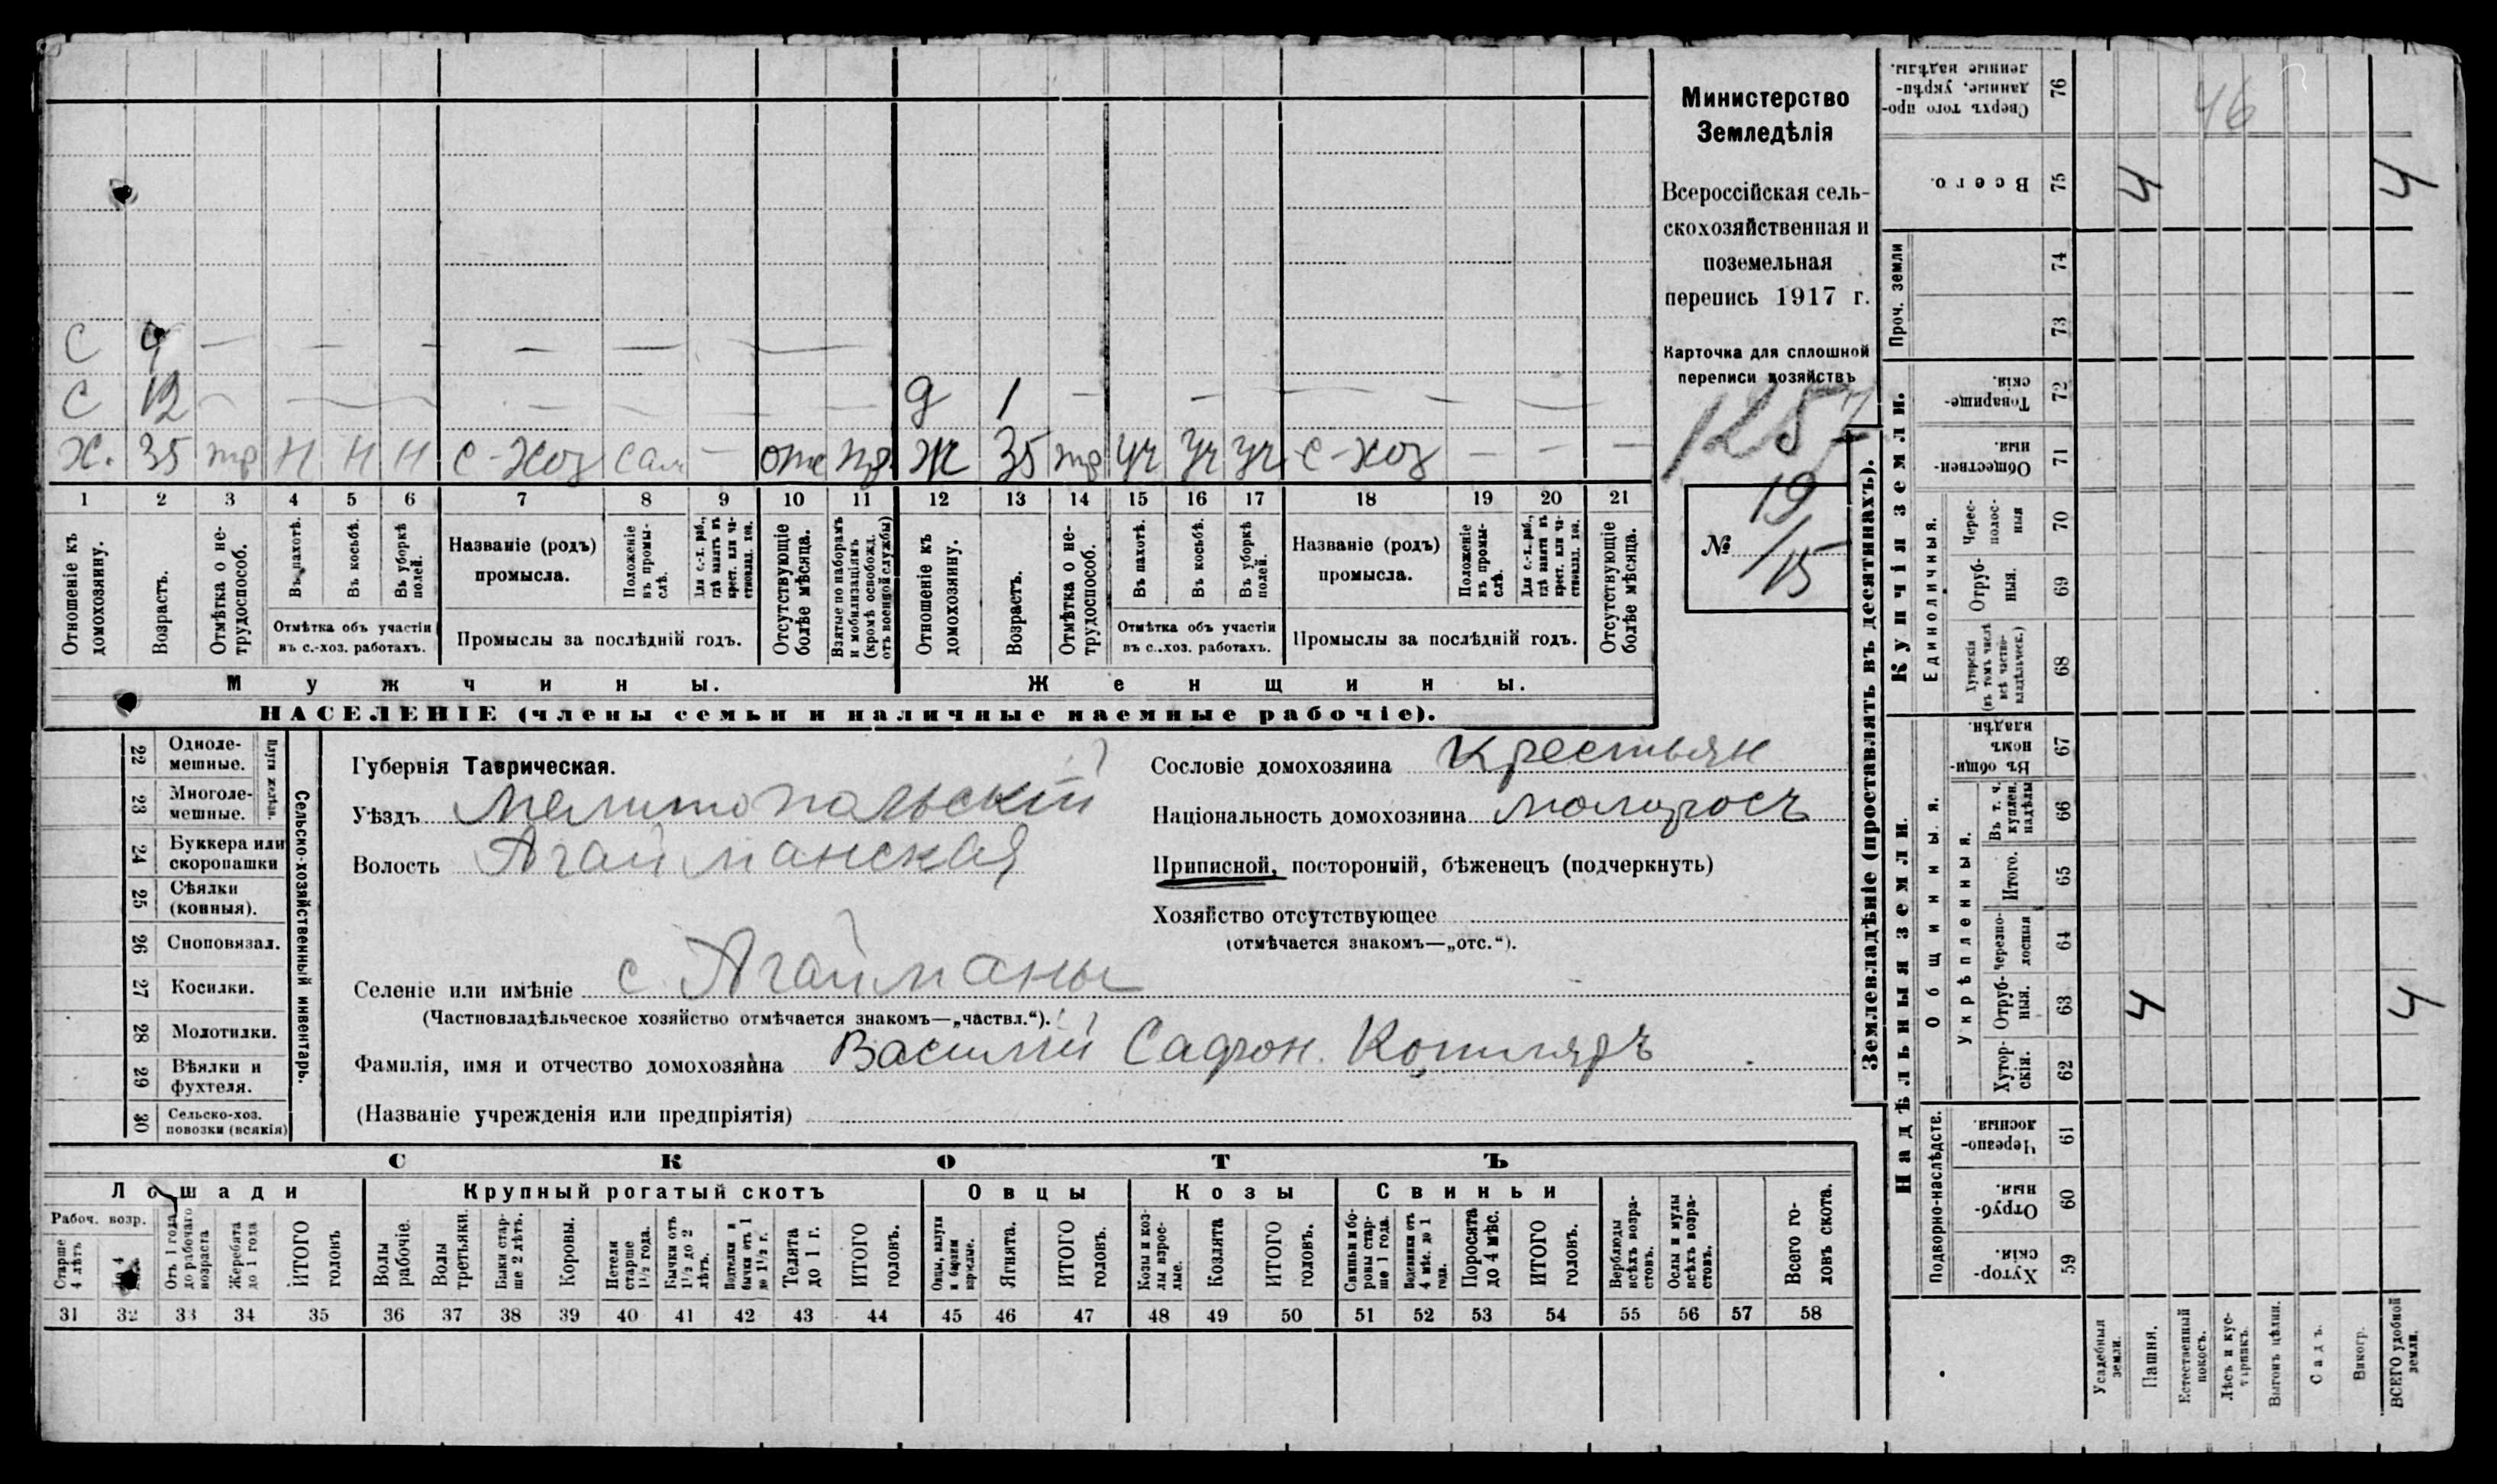 С 9 — — — — — — —
С 12 — — — — —
Д 1 — — — — — —
Х. 35 тр Н Н Н С-Хоз Сам — отс пр Ж 35 тр уч уч уч С-хоз — — —
1 2 3 4 5 6 7 8 9 10 11 12 13 14 15 16 17 18 19 20 21
Отношеніе къ домохозяину.
Возрастъ.
Отмѣтка о нетрудоспособ.
Въ пахотѣ.
Въ косьбѣ.
Въ уборкѣ полей.
Отмѣтка объ участіи
въ с.-хоз. работахъ.
Названіе (родъ)
промысла.
Положеніе въ промыслѣ.
Для с.-х. раб., гдѣ занятъ въ крест. или частновлад. хоз.
Промыслы за послѣдній годъ.
Отсутствующіе болѣе мѣсяца.
Взятые по наборамъ и мобилизаціямъ (кромѣ освобожд. отъ военной службы)
Отношеніе къ домохозяину.
Возрастъ.
Отмѣтка о нетрудоспособ.
Въ пахотѣ.
Въ косьбѣ.
Въ уборкѣ полей.
Отмѣтка объ участіи
въ с.-хоз. работахъ.
Названіе (родъ)
промысла.
Положеніе въ промыслѣ.
Для с.-х. раб., гдѣ занята въ крест. или частновлад. хоз.
Промыслы за послѣдній годъ.
Отсутствующіе болѣе мѣсяца.
Мужчины.
Женщины.
НАСЕЛЕНІЕ (члены семьи и наличные наемные рабочіе).
Министерство
Земледѣлія
Всероссійская сель-
скохозяйственная и
поземельная
перепись 1917 г.
Карточка для сплошной
переписи хозяйствъ
1257
№ 19/15
22 Одноле-
мешные.
23 Многоле-
мешные.
Плуги желѣзн.
24 Буккера или
скоропашки
25 Сѣялки
(конныя).
26 Сноповязал.
27 Косилки.
28 Молотилки.
29 Вѣялки и
фухтеля.
30 Сельско-хоз.
повозки (всякія)
Сельско-хозяйственный инвентарь.
Губернія Таврическая.
Уѣздъ Мелитопольскій
Волость Агайманская
Селеніе или имѣніе с. Агайманы
(Частновладѣльческое хозяйство отмѣчается знакомъ—„частвл.“).
Фамилія, имя и отчество домохозяина Василій Сафрон. Котляръ
(Названіе учрежденія или предпріятія)
Сословіе домохозяина Крестьян
Національность домохозяина малоросъ
Приписной, посторонній, бѣженецъ (подчеркнуть)
Хозяйство отсутствующее
(отмѣчается знакомъ—„отс.“).
СКОТЪ
Лошади
Крупный рогатый скотъ
Овцы
Козы
Свиньи
Рабоч. возр.
Старше 4 лѣтъ
Отъ 1 года до рабочаго возраста
Жеребята до 1 года
ИТОГО головъ
Волы рабочіе.
Волы третьяки.
Быки старше 2 лѣтъ.
Коровы.
Нетели старше 1½ года.
Бычки отъ 1½ до 2 лѣтъ.
Телки и бычки отъ 1 до 1½ г.
Телята до 1 г.
ИТОГО головъ.
Овцы, валухи и бараны взрослые.
Ягнята.
ИТОГО головъ.
Козы и козлы взрослые.
Козлята
ИТОГО головъ.
Свиньи и боровы старше 1 года.
Подсвинки отъ 4 мѣс. до 1 года.
Поросята до 4 мѣс.
ИТОГО головъ.
Верблюды всѣхъ возрастовъ.
Ослы и мулы всѣхъ возрастовъ.
Всего головъ скота.
31 32 33 34 35 36 37 38 39 40 41 42 43 44 45 46 47 48 49 50 51 52 53 54 55 56 57 58
Землевладѣніе (проставлять въ десятинахъ).
Надѣльныя земли.
Купчія земли.
Проч. земли
Подворно-наслѣдств.
Общинныя.
Укрѣпленныя.
Единоличныя.
76 Сверхъ того проданные, укрѣпленные надѣлы. 46
75 Всего. 4 4
74
73
72 Товарищескія.
71 Общественныя.
70 Черезполосныя
69 Отрубныя.
68 Хуторскія (въ томъ числѣ всѣ частновладѣльческ.)
67 Въ общинномъ владѣн.
66 Въ т. ч. куплен. надѣлы
65 Итого.
64 Черезполосныя
63 Отрубныя. 4 4
62 Хуторскія.
61 Черезполосныя.
60 Отрубныя.
59 Хуторскія.
Усадебныя земли.
Пашня.
Естественный покосъ.
Лѣсъ и кустарникъ.
Выгонъ цѣлин.
Садъ.
Виногр.
ВСЕГО удобной земли.